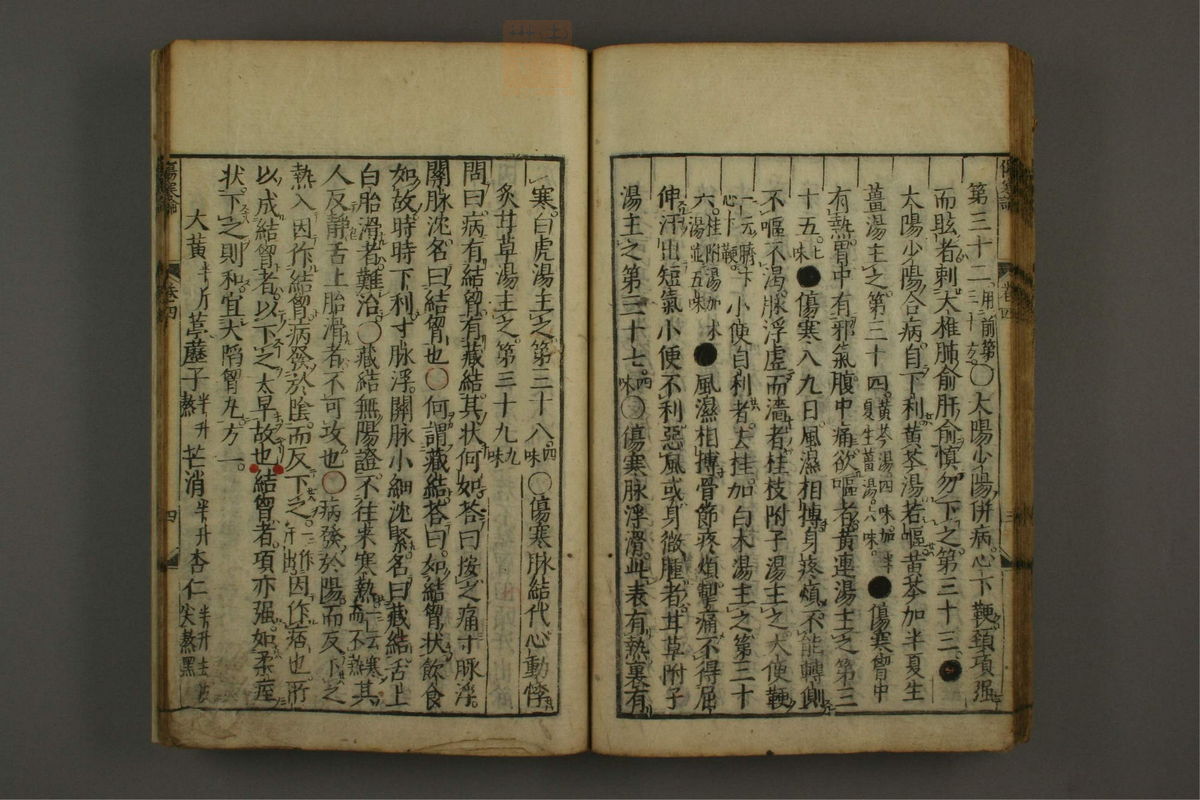 第三十二。用前第三十方○太陽少陽併病。心下鞕頚項强
而眩者。刺大椎肺俞肝俞。慎勿下之。第三十三。●
太陽少陽合病。自下利黄芩湯。若嘔黄芩加半夏生
薑湯主之。第三十四。黄芩湯四味。加半夏生薑湯六味。●傷寒胷中
有熱。胃中有邪氣。腹中痛欲嘔者。黄連湯主之。第三
十五。七味●傷寒八九日。風濕相摶身疼煩。不能轉側。
不嘔不渴。脉浮虚而濇者。桂枝附子湯主之。大便鞕
一云臍下心下鞕。小便自利者。去桂加白术湯主之。第三十
六。桂附湯加术湯並五味●風濕相摶骨節疼煩。掣痛不得屈
伸。汗出短氣。小便不利。惡風或身微腫者。甘草附子
湯主之。第三十七。四味○傷寒脉浮滑。此表有熱。裏有
寒。白虎湯主之。第三十八。四味○傷寒脉結代。心動悸。
炙甘草湯主之。第三十九。九味
問曰。病有結胷。有藏結。其状何如。荅曰。按之痛。寸脉浮。
關脉沈。名曰結胷也。○何謂藏結。荅曰。如結胷状。飲食
如故。時時下利。寸脉浮。關脉小細沈緊。名曰藏結。舌上
白胎滑者難治。○藏結無陽證。不往来寒熱。一云寒而不熱其
人反静。舌上胎滑者。不可攻也。○病發於陽。而反下之。
熱入因作結胷。病發於陰。而反下之。一作汗出因作痞也。所
以成結胷者。以下之太早故也。結胷者。項亦强。如柔痓
状。下之則和。宜大陷胷丸。方一。
大黄半斤葶藶子半升熬芒消半升杏仁半升去皮尖熬黒
傷寒論
卷四
三
傷寒論
卷四
四